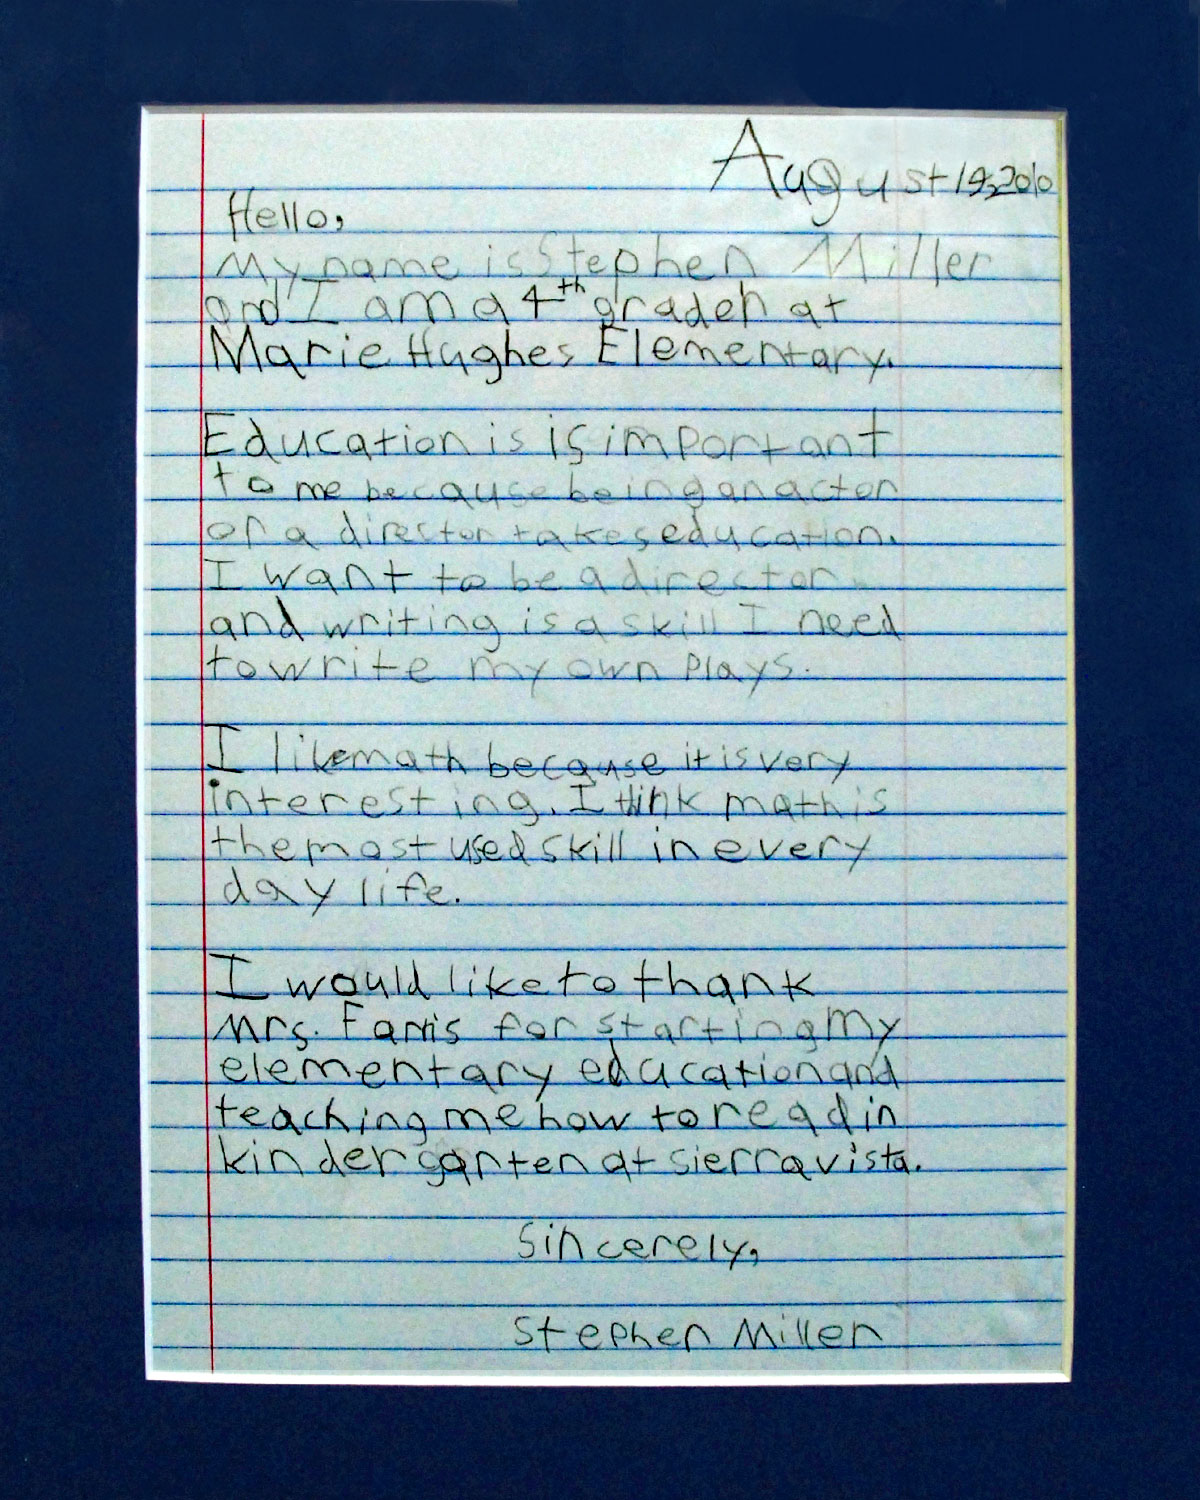 August 19, 2010
Hello,
My name is Stephen Miller
and I am a 4th grader at
Marie Hughes Elementary.
Education is is important
to me because being an actor
or a director takes education.
I want to be a director
and writing is a skill I need
to write my own plays.
I like math because it is very
interesting. I think math is
the most used skill in every
day life.
I would like to thank
Mrs. Farris for starting my
elementary education and
teaching me how to read in
kindergarten at sierra vista.
Sincerely,
Stephen Miller